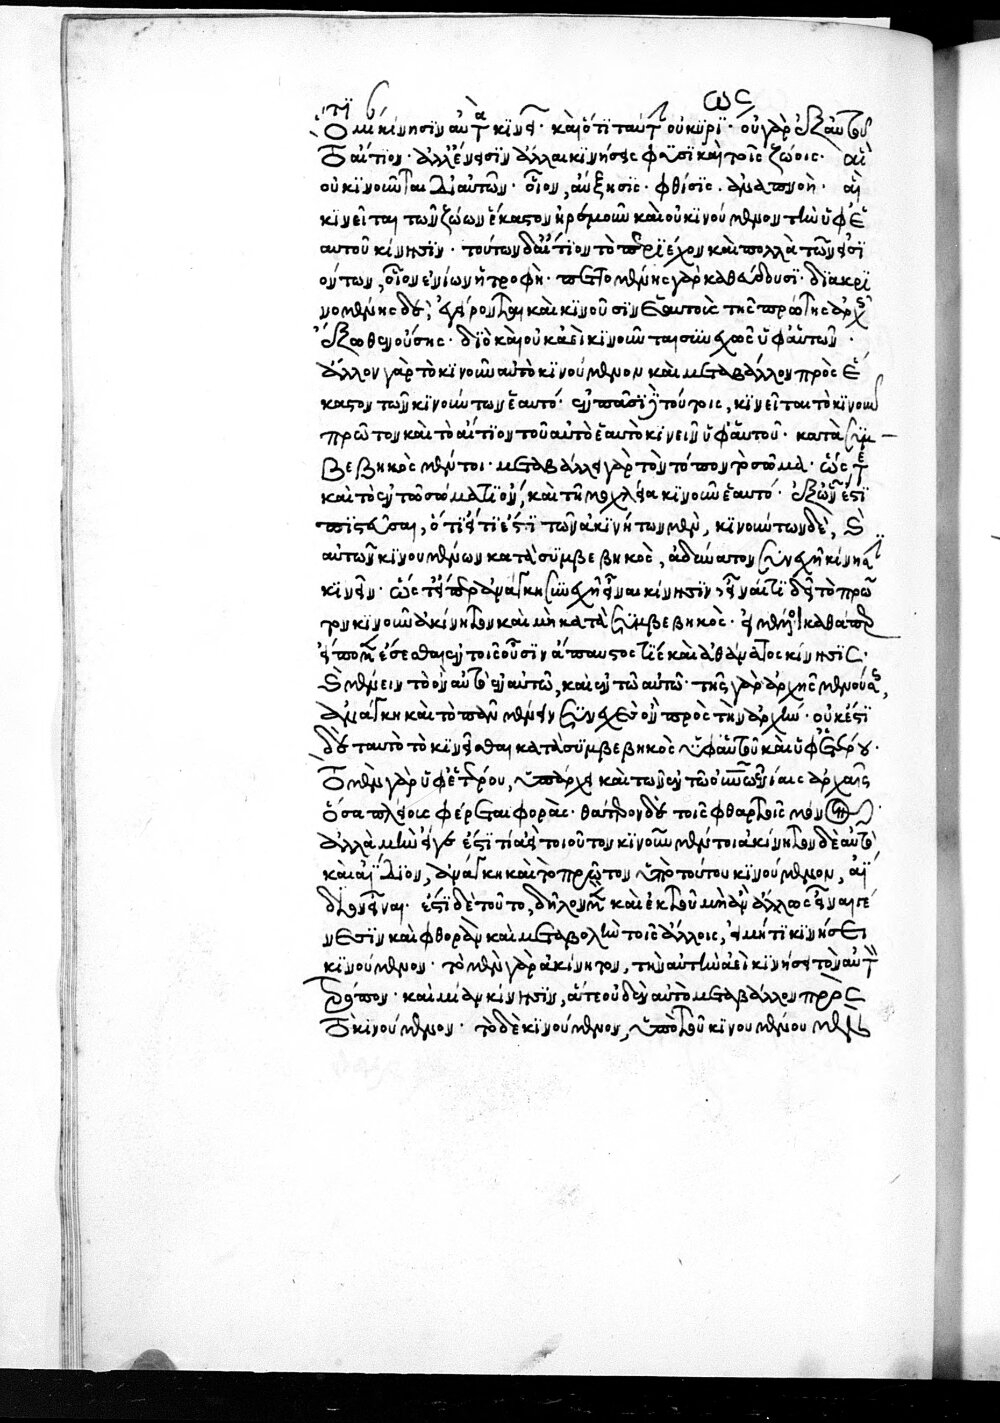 ὅτι μίαν κίνησιν αὐτὰ κινεῖ· καὶ ὅτι ταύτην οὐ κυρίως· οὐ γὰρ ἐξ αὐτοῦ
τὸ αἴτιον· ἀλλ' ἔνεισιν ἄλλαι κινήσεις φυσικαὶ τοῖς ζώοις· ἃς
οὐ κινοῦνται δι' αὐτῶν· οἷον, αὔξησις· φθίσις· ἀναπνοὴ· ἃς
κινεῖται τῶν ζώων ἕκαστον ἠρεμοῦν καὶ οὐ κινούμενον τὴν ὑφ' ἑ
αυτοῦ κίνησιν· τούτων δ' αἴτιον τὸ περιέχον καὶ πολλὰ τῶν εἰσι
όντων, οἷον ἐνίων ἡ τροφὴ· πεττομένης γὰρ καθεύδουσι· διακρι
νομένης δὲ, ἐγείρονται καὶ κινοῦσιν ἑαυτοὺς τῆς πρώτης ἀρχῆς
ἔξωθεν οὔσης· διὸ καὶ οὐκ ἀεὶ κινοῦνται συνεχῶς ὑφ' αὑτῶν·
ἄλλον γὰρ τὸ κινοῦν αὐτὸ κινούμενον καὶ μεταβάλλον πρὸς ἕ
καστον τῶν κινούντων ἑαυτό· ἐν πᾶσι δὲ τούτοις, κινεῖται τὸ κινοῦν
πρῶτον καὶ τὸ αἴτιον τοῦ αὐτὸ ἑαυτὸ κινεῖν ὑφ' αὑτοῦ· κατὰ συμ
βεβηκὸς μέντοι· μεταβάλλει γὰρ τὸν τόπον τὸ σῶμα· ὥστε
καὶ τὸ ἐν τῷ σώματι ὂν, καὶ τῇ μοχλεία κινοῦν ἑαυτό· ἐξ ὧν ἔστι
πιστεῦσαι, ὅτι εἴ τι ἐστὶ τῶν ἀκινήτων μὲν, κινούντων δὲ, καὶ
αὐτῶν κινουμένων κατὰ συμβεβηκὸς, ἀδύνατον συνεχῆ κίνησιν
κινεῖν· ὥστ' εἴπερ ἀνάγκη συνεχῆ εἶναι κίνησιν, εἶναί τι δεῖ τὸ πρῶ
τον κινοῦν ἀκίνητον καὶ μὴ κατὰ συμβεβηκὸς· εἰ μέλλει καθάπερ
εἴπομεν ἔσεσθαι ἐν τοῖς οὖσιν ἄπαυστός τις καὶ ἀθάνατος κίνησις·
καὶ μένειν τὸ ὂν αὐτὸ ἐν αὑτῷ, καὶ ἐν τῷ αὐτῷ· τῆς γὰρ ἀρχῆς μενούσης,
ἀνάγκη καὶ τὸ πᾶν μένειν συνεχὲς ὂν πρὸς τὴν ἀρχήν· οὐκ ἔστι
δὲ ταυτὸ τὸ κινεῖσθαι κατὰ συμβεβηκὸς ὑφ' αὑτοῦ καὶ ὑφ' ἑτέρου·
τὸ μὲν γὰρ ὑφ' ἑτέρου, ὑπάρχει καὶ τῶν ἐν τῷ οὐρανῷ ἐνίαις ἀρχαῖς
ὅσα πλείους φέρεται φοράς· θάτερον δὲ τοῖς φθαρτοῖς μόνον·
ἀλλὰ μὴν εἴγε ἐστί τι ἀεὶ τοιοῦτον κινοῦν μέν τοι ἀκίνητον δὲ αὐτὸ
καὶ ἀΐδιον, ἀνάγκη καὶ τὸ πρῶτον ὑπὸ τούτου κινούμενον, ἀΐ
διον εἶναι· ἔστι δὲ τοῦτο, δῆλον μὲν καὶ ἐκ τοῦ μὴ ἂν ἄλλως εἶναι γέ
νεσιν καὶ φθορὰν καὶ μεταβολὴν τοῖς ἄλλοις, εἰ μή τι κινήσει
κινούμενον· τὸ μὲν γὰρ ἀκίνητον, τὴν αὐτὴν ἀεὶ κινήσει τὸν αὐτὸν
τρόπον· καὶ μίαν κίνησιν, ἅτε οὐδὲν αὐτὸ μεταβάλλον πρὸς
τὸ κινούμενον· τὸ δὲ κινούμενον, ὑπὸ τοῦ κινουμένου μὲν